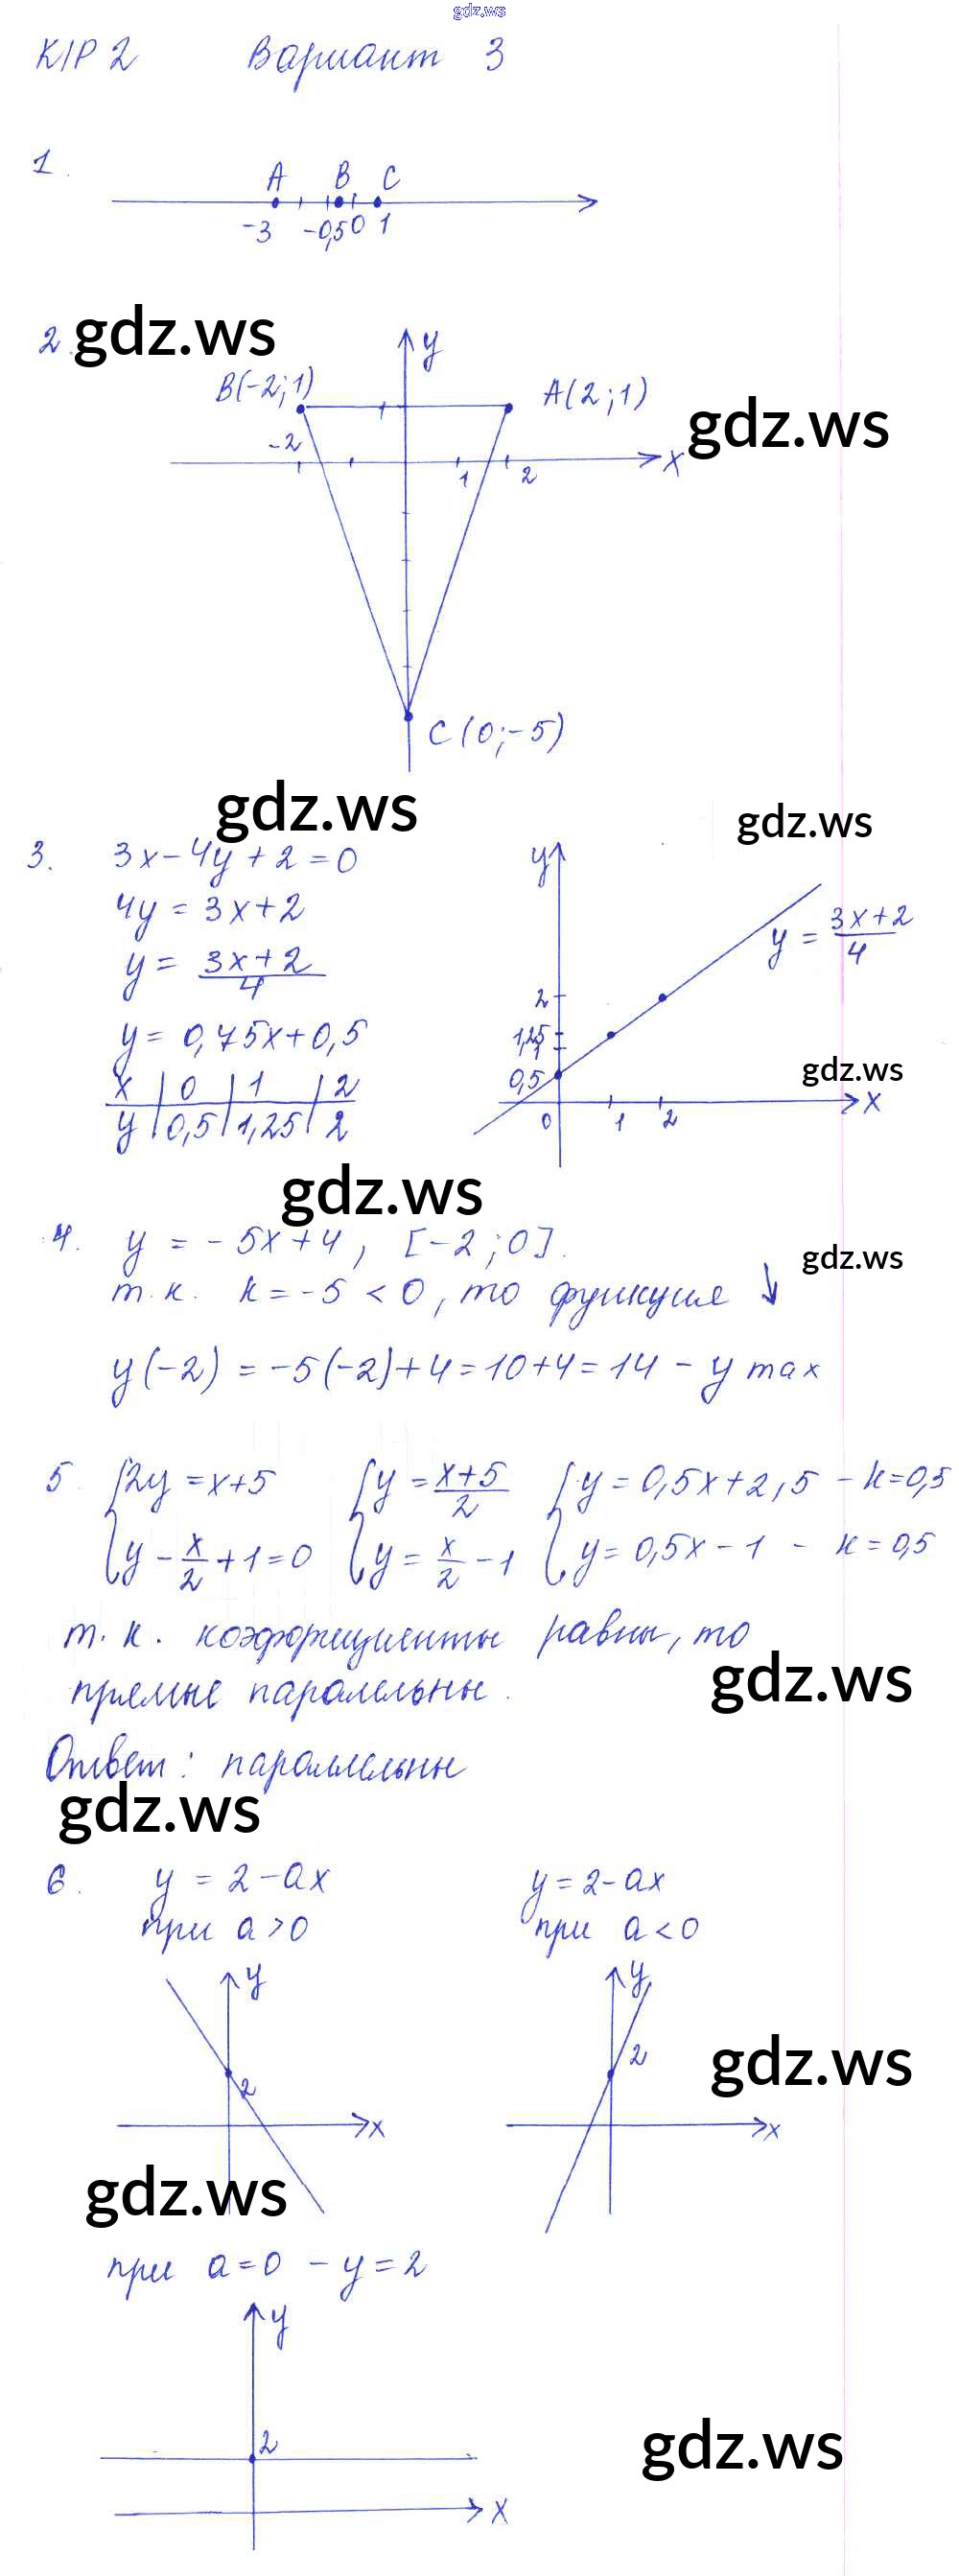 gdz.ws
К/Р 2 Вариант 3
1.
A B C
-3 -0,5 0 1
2. gdz.ws
y
B(-2;1) A(2;1)
gdz.ws
-2 1 2 x
C(0;-5)
gdz.ws
gdz.ws
3. 3x-4y+2=0
4y=3x+2
y= 3x+2/4
y=0,75x+0,5
x | 0 | 1 | 2
y | 0,5 | 1,25 | 2
y
y = 3x+2/4
2
1,25
1
0,5
gdz.ws
0 1 2 x
gdz.ws
4. y = -5x+4, [-2;0].
gdz.ws
т.к. k=-5<0, то функция ↓
y(-2) = -5(-2)+4=10+4=14 - y max
5. {2y=x+5 {y=x+5/2 {y=0,5x+2,5 - k=0,5
{y-x/2+1=0 {y=x/2-1 {y=0,5x-1 - k=0,5
т.к. коэффициенты равны, то
gdz.ws
прямые паралельны.
Ответ: параллельны
gdz.ws
6. y = 2-ax y=2-ax
при a>0 при a<0
y y
2 2
gdz.ws
x x
gdz.ws
при a=0 - y=2
y
2
gdz.ws
x